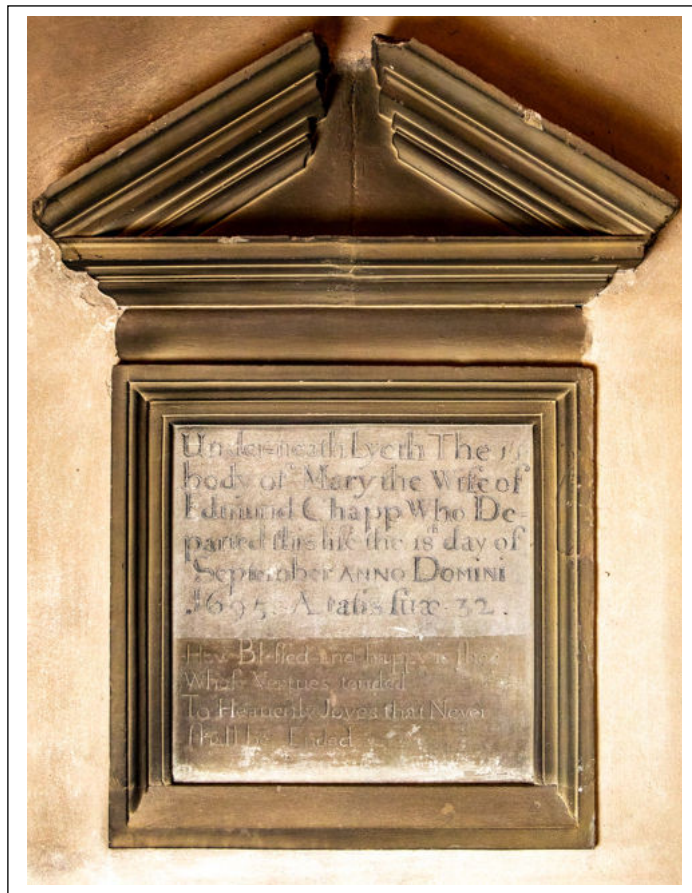 Underneath Lyeth The
body of Mary the Wife of
Edmund Chapp Who De-
parted this life the day of
September ANNO DOMINI
1695 Ætatis suæ 32.
How Blessed and happy is she
Whose Vertues tended
To Heavenly Joyes that Never
shall be Ended